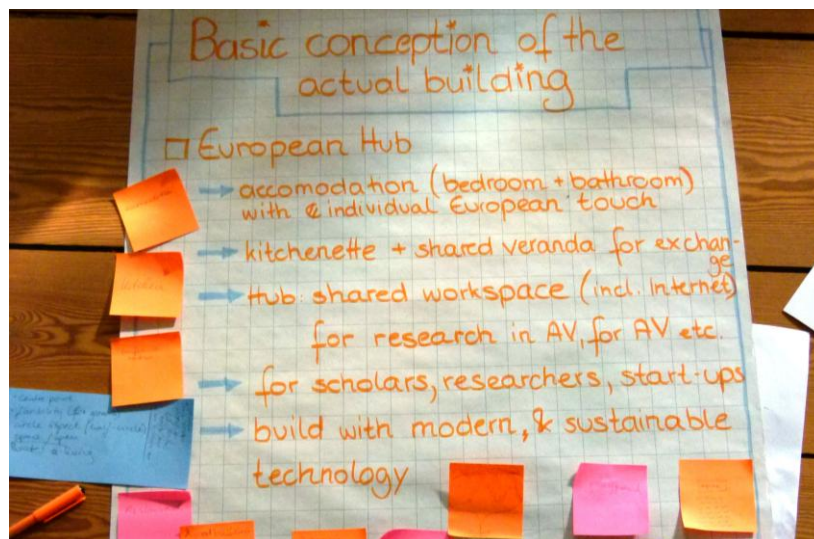 Basic conception of the
actual building
European Hub
accomodation (bedroom + bathroom)
with & individual European touch
kitchenette + shared veranda for exchan-
ge
Hub: shared workspace (incl. Internet)
for research in AV, for AV etc.
for scholars, researchers, start-ups
build with modern, & sustainable
technology
kitchen